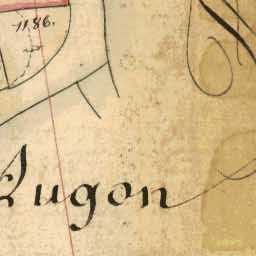 1186.
Lugon